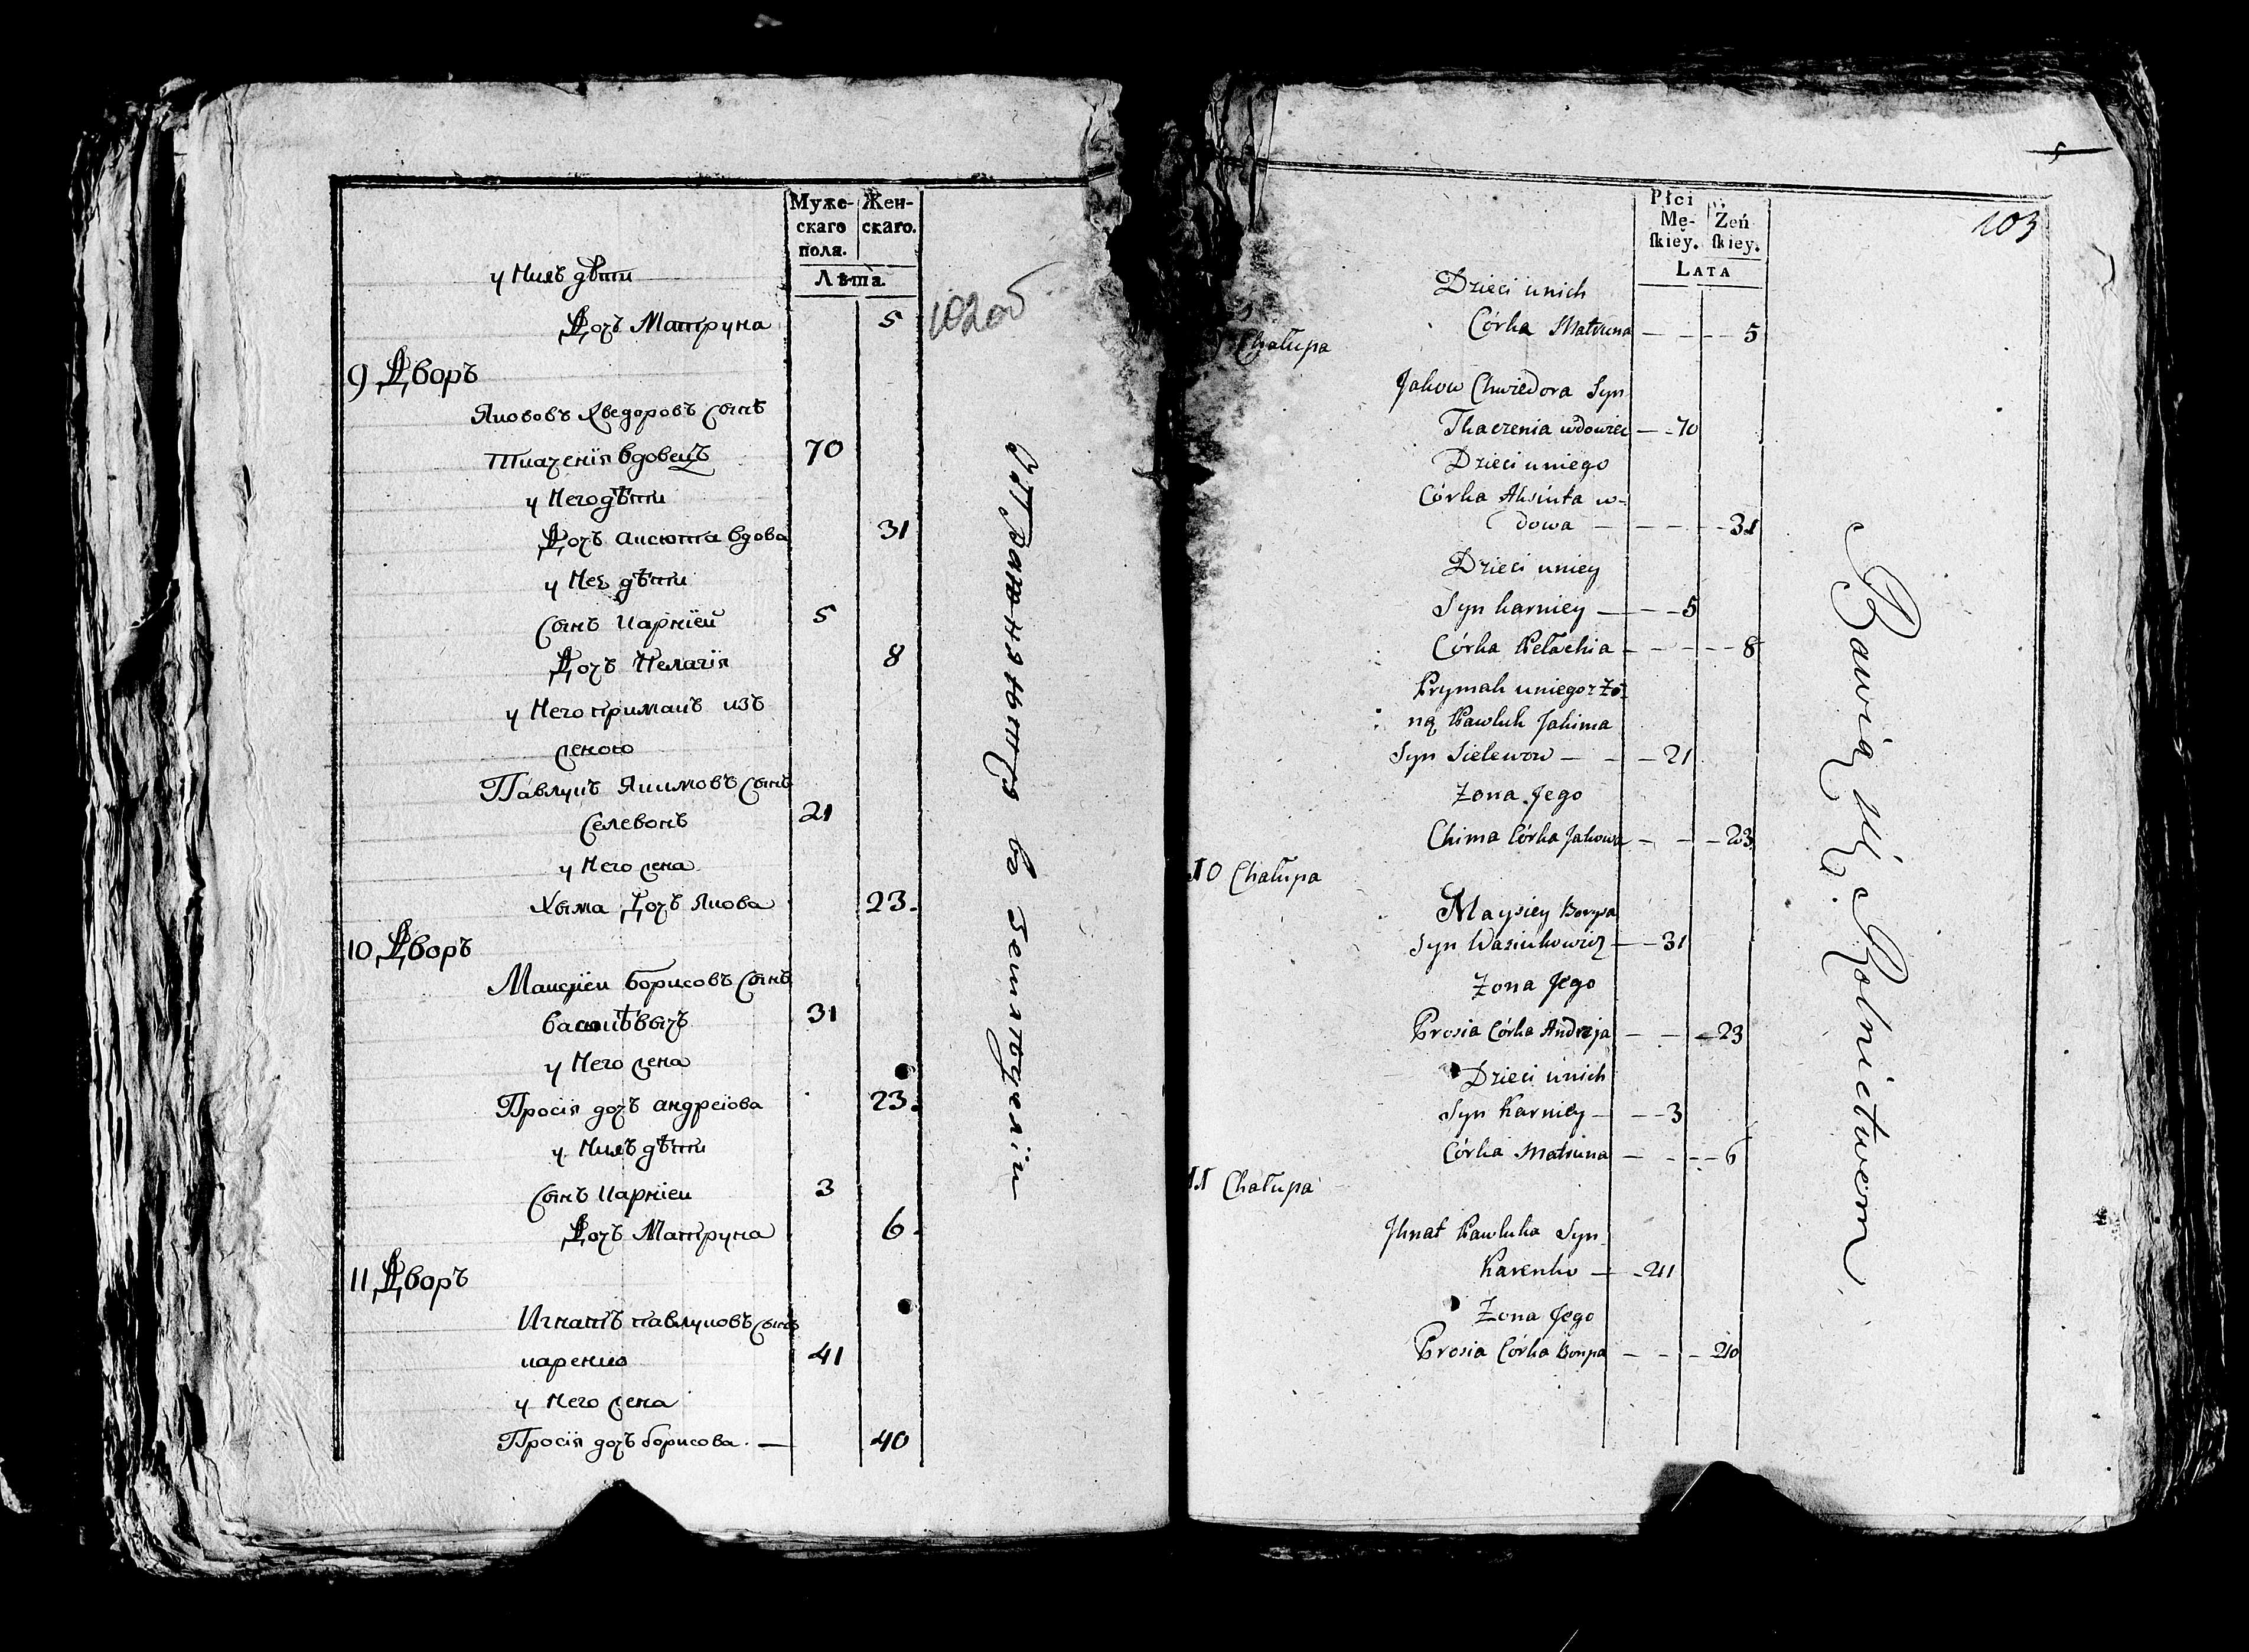 Муже-
скаго
пола.
Жен-
скаго.
Лѣта.
у Нихъ дѣти
Дочъ Матруна 5
102об
9 Дворъ
Яковъ Хведоровъ сынъ
Ткаченія вдовецъ 70
у Него дѣти
Дочъ Аксюта вдова 31
у Неѣ дѣти
Сынъ Карнїей 5
Дочъ Пелагія 8
у Него примакъ изъ
женою
Павлукъ Якимовъ Сынъ
Селевонъ 21
у Него жена
Хыма Дочъ Якова 23.
10 Дворъ
Майсѣй Борисовъ Сынъ
31
у Него жена
Просія дочъ андреіова 23.
у Нихъ дѣти
Сынъ Карнїей 3
Дочъ Матруна 6.
11 Дворъ
Игнатъ павлуковъ Сынъ
каренко 41
у Него жена
Просія дочъ борисова. — 40
Упражняютца в земледѣлїи
5
103
Płci
Mę-
ſkiey.
Żeń
ſkiey.
LATA
Dzieci unich
Córka Matruna — - - - 5
Chałupa
Jakow Chwiedora Syn
Tkaczenia wdowiec — - 70
Dzieci uniego
Córka Aksiuta w-
dowa — - - - - 31
Dzieci uniey
Syn karniey — - - 5
Córka Pełachia - - - - - 8
Prymak uniego z żo-
ną Pawluk Jakima
Syn Sielewon — - - 21
Żona Jego
Chima Córka Jakowa - - - 23
10 Chałupa
Maysiey Borysa
Syn Wasiukowicz — - 31
Żona Jego
Prosia Córka Andreja - - - 23
Dzieci unich
Syn Karniey — - - 3
Córka Matruna - - - - 6
11 Chałupa
Jhnat Pawluka Syn
Karenko — - 41
Żona Jego
Prosia Córka Borysa - - - 40
Bawią się Rolnictwem